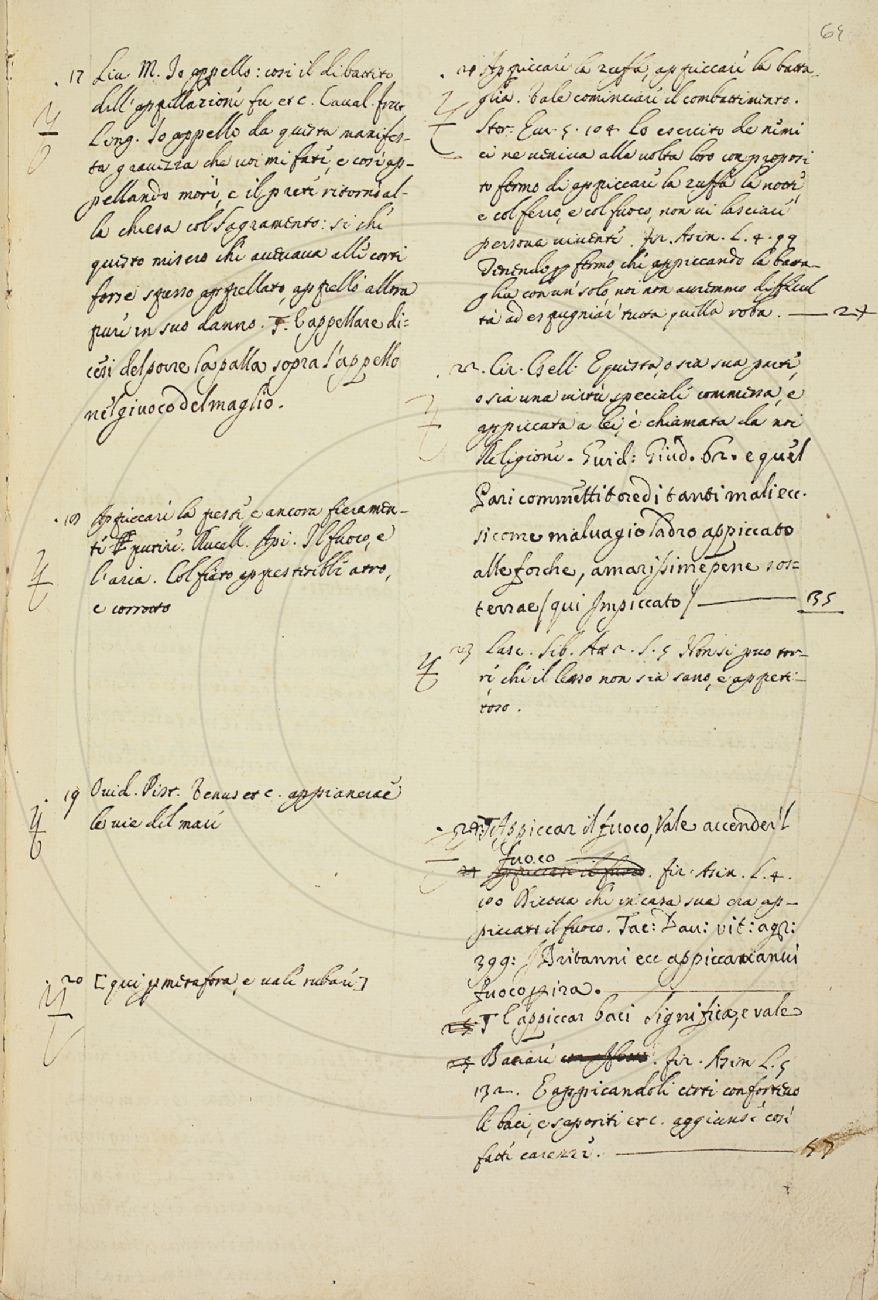 65
17 Liu M. Io appello: così il dibattito
dell'appellazioni fu etc. Caual. frutt.
Ling. Io appello da questa manifes-
ta grauezza che uoi mi fati, e così ap-
pellando morì, e il preti ritornò al-
la chiesa col Sagramento: si chi
questo misero chi aueua alli corti
forse spesso appellato, appellò allora
puri in suo danno. T. E appellare di-
cesi del porre la palla sopra l'appello
nel giuoco del maglio.
18 Appiccari la pesti e ancora fieramen-
ti putiri. Rucell. Api. Il fuoco, e
l'aria. Col fiato appestiribli atro,
e corrotto
19 Ouid. Pist. Venus etc. appianerae
le uie del mari
20 [qui p metafora, e uali rubari]
21 Appiccari la zuffa, appiccari la batta-
glia. Vale cominciari il combattimento.
Stor. Eur. 5. 104 Lo esercito de nimi
ci ne ueniua alla uolta loro con proposi
to fermo di appiccari la zuffa la notti,
e col ferro, e col fuoco, non ui lasciari
persona uiuenti. fir. Asin. L. 4. 99
Tenendo p fermo, chi appiccando la batta-
glia con un solo, noi non auremmo difficul
tà ad espugniari tutta quella roba. — 27
22. Cir. Gell. E questa, o sia sua parti,
o sia una uirtù speciali commessa, e
appiccata a lei, è chiamata da noi
Religioni. Guid: Giud. br. e quel
Pari commettitore di tanti mali ecc.
sicome maluagio ladro appiccato
alle forche, amarissime pene sos-
terrae [qui Impiccato] — 35
23 Lasc. Sib. At. S. 5 Non si può tor-
ri chi il lesso non sia sano, e appeti-
toso.
24 T. Appiccar il fuoco, Vale accender'l
fuoco
fir. Asin. L. 4.
100 Diceua chi in casa sua era ap-
piccato il fuoco. Tac: Dau: vit: agr:
399: I Britanni ecc appiccarianui
fuoco p ira.
T E appiccar baci significa, e vale
Baciari. fir. Asin L. 5
132. E appicandoli certi confortino
li baci, e saporiti etc. aggiunse così
fatti carezzi. — 57